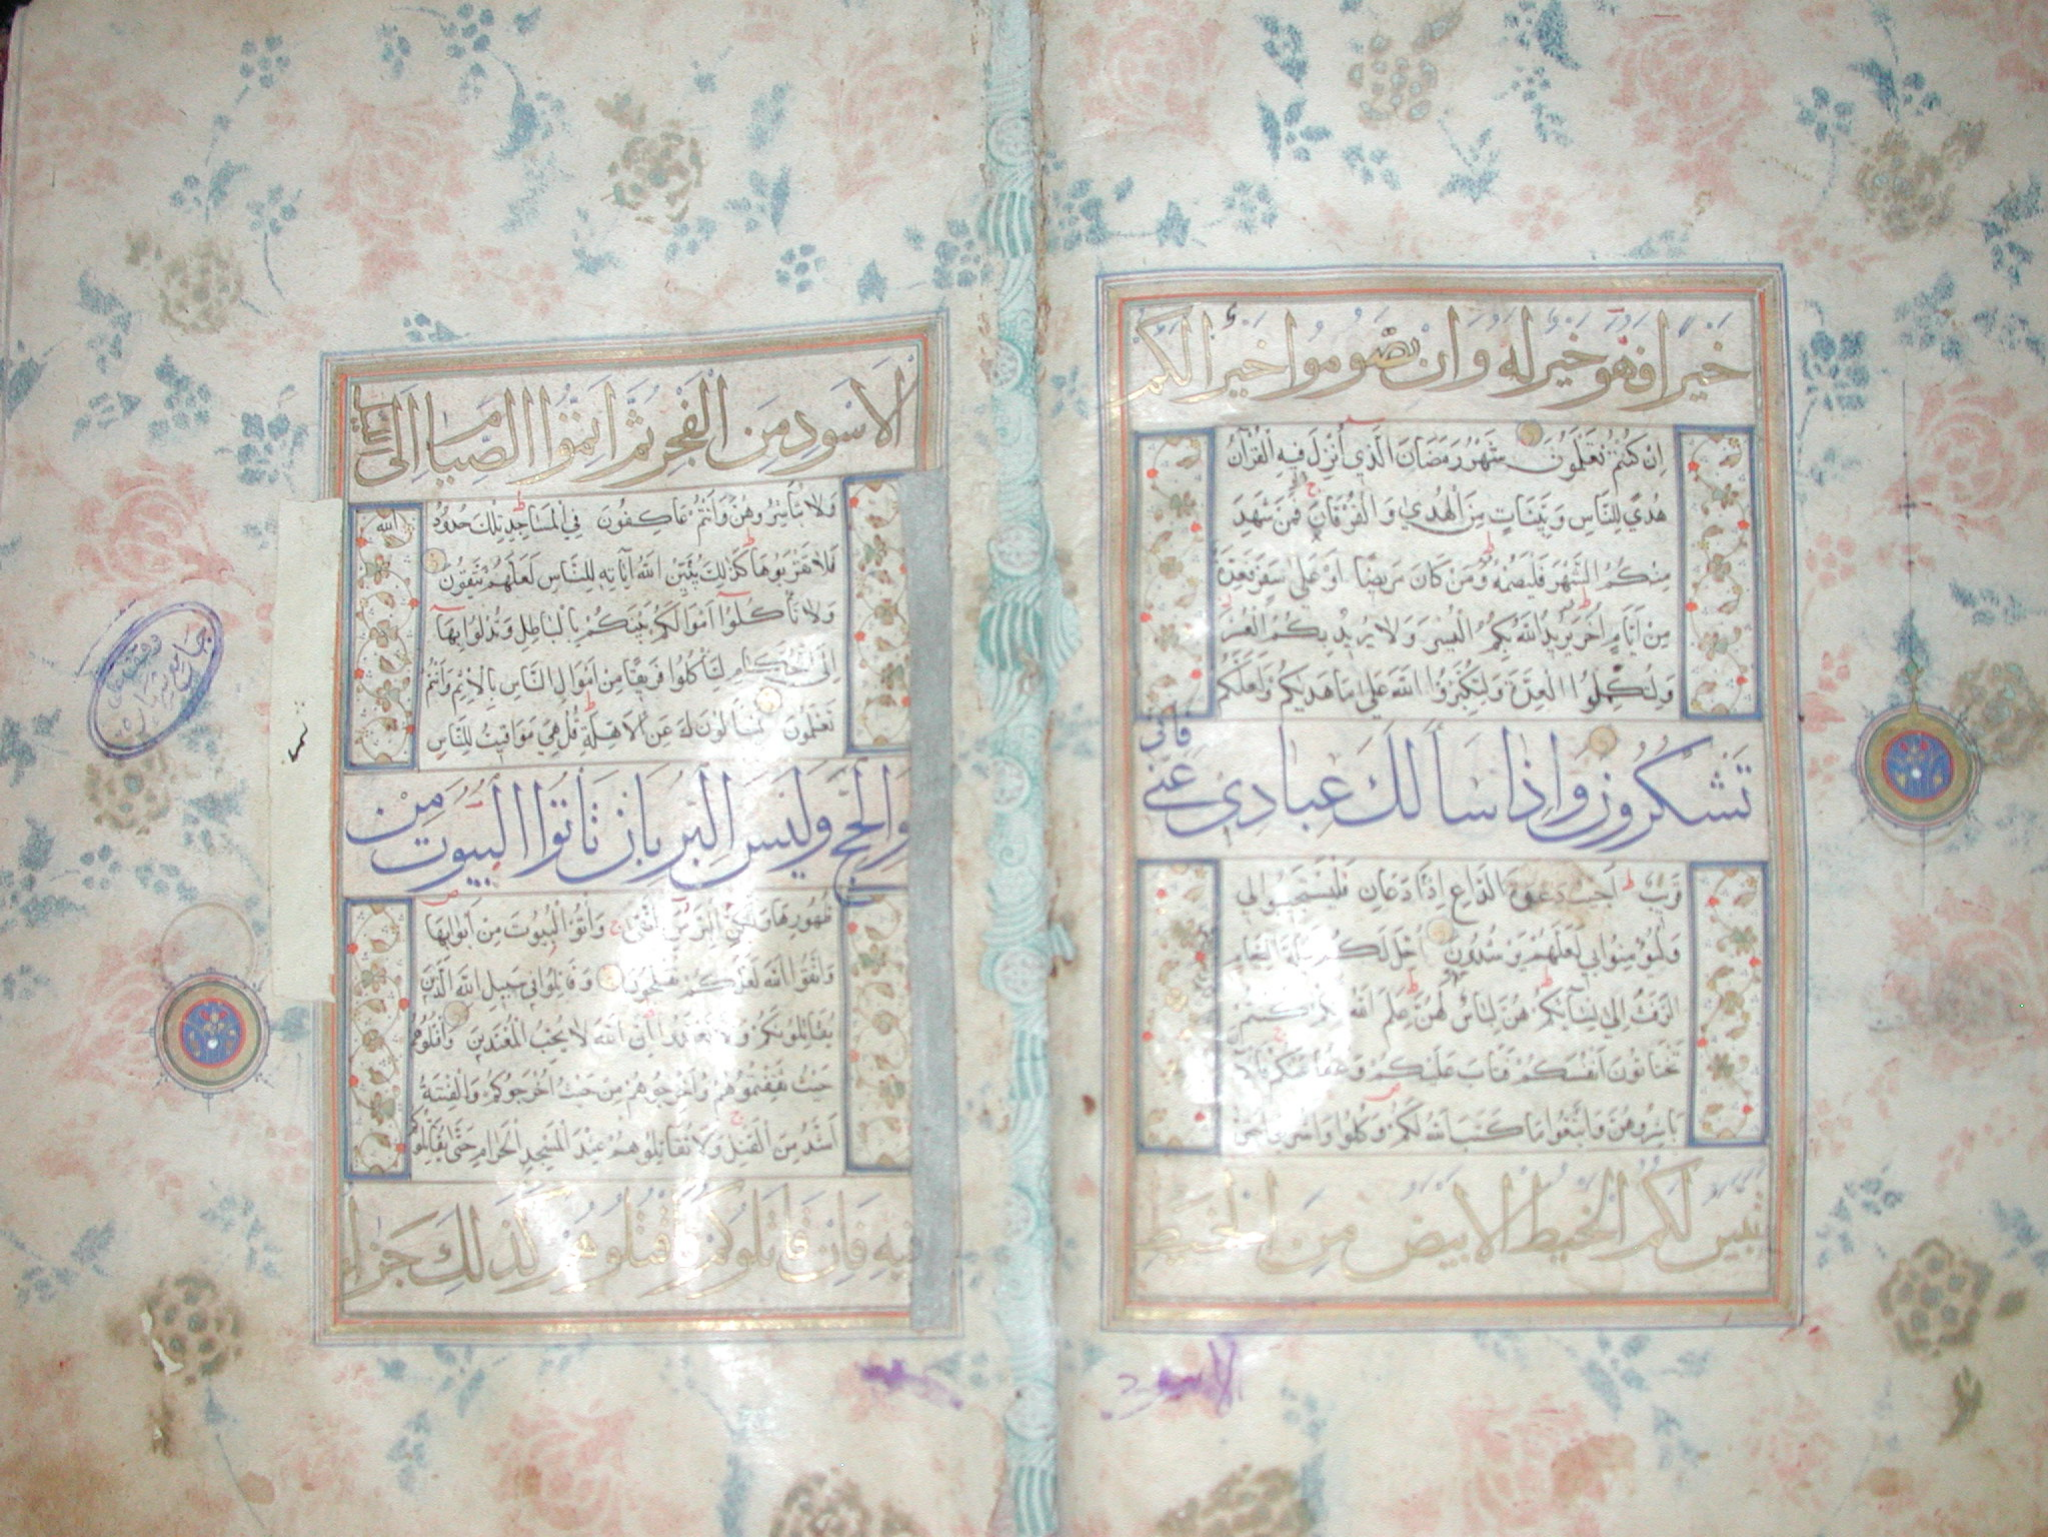 خيرا فهو خير له وان تصوموا خير الكم
اِنْ كُنْتُمْ تَعْلَمُونَ شَهْرُ رَمَضَانَ الَّذِي اُنْزِلَ فِيهِ الْقُرْآنُ
هُدًى لِلنَّاسِ وَبَيِّنَاتٍ مِنَ الْهُدٰي وَالْفُرْقَانِ فَمَنْ شَهِدَ
مِنْكُمُ الشَّهْرَ فَلْيَصُمْهُ وَمَنْ كَانَ مَرِيضًا اَوْ عَلٰي سَفَرٍ فَعِدَّةٌ
مِنْ اَيَّامٍ اُخَرَ يُرِيدُ اللّٰهُ بِكُمُ الْيُسْرَ وَلَا يُرِيدُ بِكُمُ الْعُسْرَ
وَلِتُكْمِلُوا الْعِدَّةَ وَلِتُكَبِّرُوا اللّٰهَ عَلٰي مَا هَدٰيكُمْ وَلَعَلَّكُمْ
تَشكرون واذا سَاَلكَ عِبادى عَنّى فَانّى
قَرِيبٌ اُجِيبُ دَعْوَةَ الدَّاعِ اِذَا دَعَانِ فَلْيَسْتَجِيبُوا لِي
وَلْيُؤْمِنُوا بِي لَعَلَّهُمْ يَرْشُدُونَ اُحِلَّ لَكُمْ لَيْلَةَ الصِّيَامِ
الرَّفَثُ اِلٰى نِسَآئِكُمْ هُنَّ لِبَاسٌ لَهُنَّ عَلِمَ اللّٰهُ اَنَّكُمْ كُنْتُمْ
تَخْتَانُونَ اَنْفُسَكُمْ فَتَابَ عَلَيْكُمْ وَعَفَا عَنْكُمْ فَالْآنَ
بَاشِرُوهُنَّ وَابْتَغُوا مَا كَتَبَ اللّٰهُ لَكُمْ وَكُلُوا وَاشْرَبُوا حَتّٰى
يتبين لكم الخيط الابيض من الخيط
الاسود
الاَسْودِ مِنَ الْفَجْرِ ثُمَّ اَتِمُّوا الصِّيَامَ اِلَى
وَلَا تُبَاشِرُوهُنَّ وَاَنْتُمْ عَاكِفُونَ فِي الْمَسَاجِدِ تِلْكَ حُدُودُ
الله
فَلَا تَقْرَبُوهَا كَذٰلِكَ يُبَيِّنُ اللّٰهُ آيَاتِهِ لِلنَّاسِ لَعَلَّهُمْ يَتَّقُونَ
وَلَا تَأْكُلُوا اَمْوَالَكُمْ بَيْنَكُمْ بِالْبَاطِلِ وَتُدْلُوا بِهَا
اِلَى الْحُكَّامِ لِتَأْكُلُوا فَرِيقًا مِنْ اَمْوَالِ النَّاسِ بِالْاِثْمِ وَاَنْتُمْ
تَعْلَمُونَ يَسْأَلُونَكَ عَنِ الْاَهِلَّةِ قُلْ هِيَ مَوَاقِيتُ لِلنَّاسِ
وَالحَجّ وَلَيْسَ البِرّ بِاَنْ تَاْتُوا البُيُوتَ مِنْ
ظُهُورِهَا وَلٰكِنَّ الْبِرَّ مَنِ اتَّقٰى وَأْتُوا الْبُيُوتَ مِنْ اَبْوَابِهَا
وَاتَّقُوا اللّٰهَ لَعَلَّكُمْ تُفْلِحُونَ وَقَاتِلُوا فِي سَبِيلِ اللّٰهِ الَّذِينَ
يُقَاتِلُونَكُمْ وَلَا تَعْتَدُوا اِنَّ اللّٰهَ لَا يُحِبُّ الْمُعْتَدِينَ وَاقْتُلُوهُمْ
حَيْثُ ثَقِفْتُمُوهُمْ وَاَخْرِجُوهُمْ مِنْ حَيْثُ اَخْرَجُوكُمْ وَالْفِتْنَةُ
اَشَدُّ مِنَ الْقَتْلِ وَلَا تُقَاتِلُوهُمْ عِنْدَ الْمَسْجِدِ الْحَرَامِ حَتّٰى يُقَاتِلُوكُمْ
فيهِ فَاِنْ قَاتَلُوكُمْ فَاقْتُلُوهُمْ كَذٰلِكَ جَزَاء